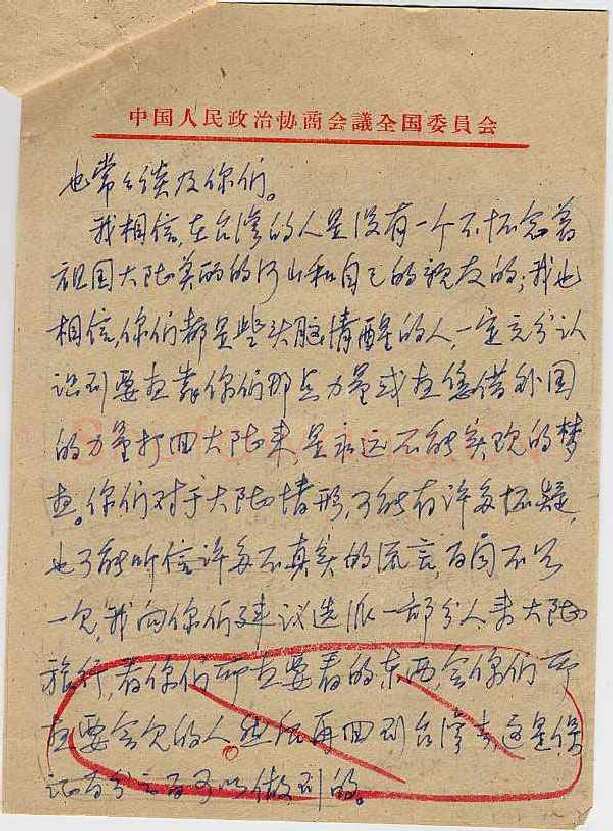 中国人民政治协商会議全国委員会
也常々谈及你们。
我相信,在台湾的人是没有一个不怀念着
祖国大陆美丽的河山和自己的亲友的;我也
相信,你们都是些头脑清醒的人,一定充分认
识到要想靠你们那点力量或想凭借外国
的力量打回大陆来,是永远不能实现的梦
想。你们对于大陆情形,可能有许多怀疑,
也可能听信许多不真实的流言,百闻不如
一见,我向你们建议选派一部分人来大陆
旅行,看你们所想要看的东西,会你们所
想要会见的人,然后再回到台湾去,这是保
证百分之百可以做到的。